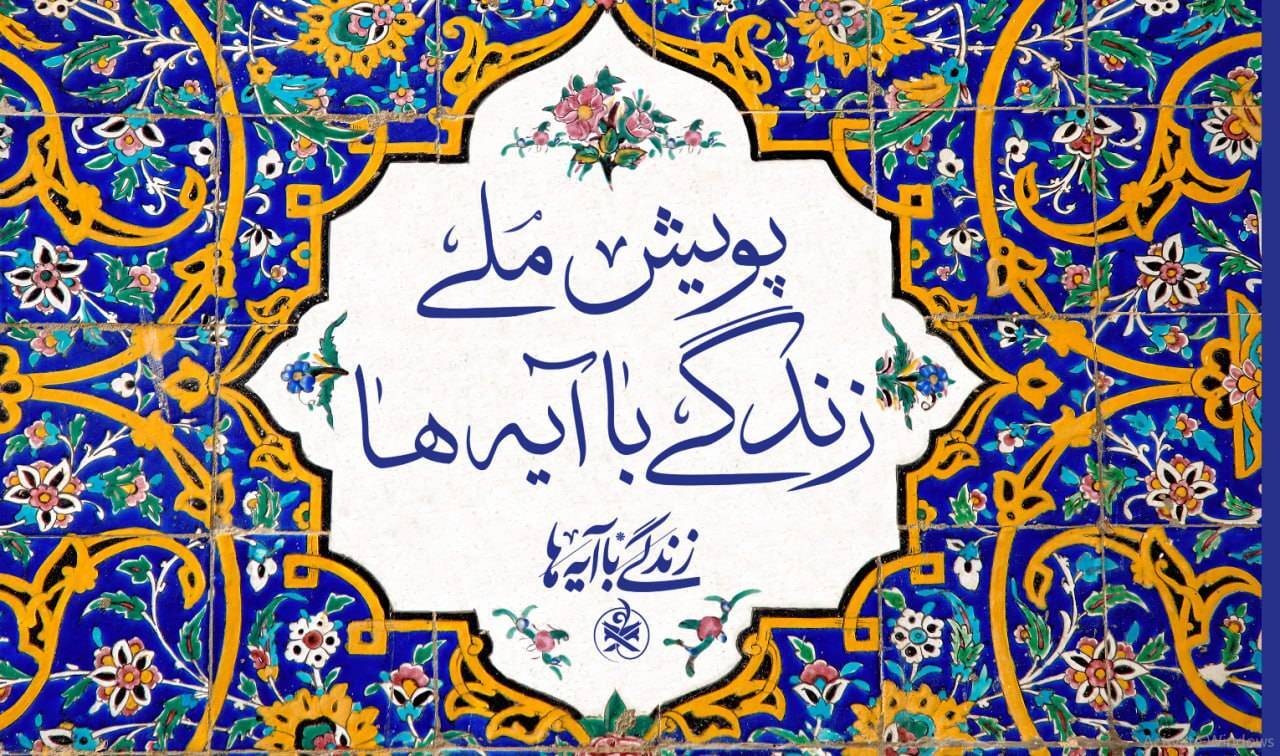 پویش ملی
زندگی با آیه ها
زندگی با آیه ها